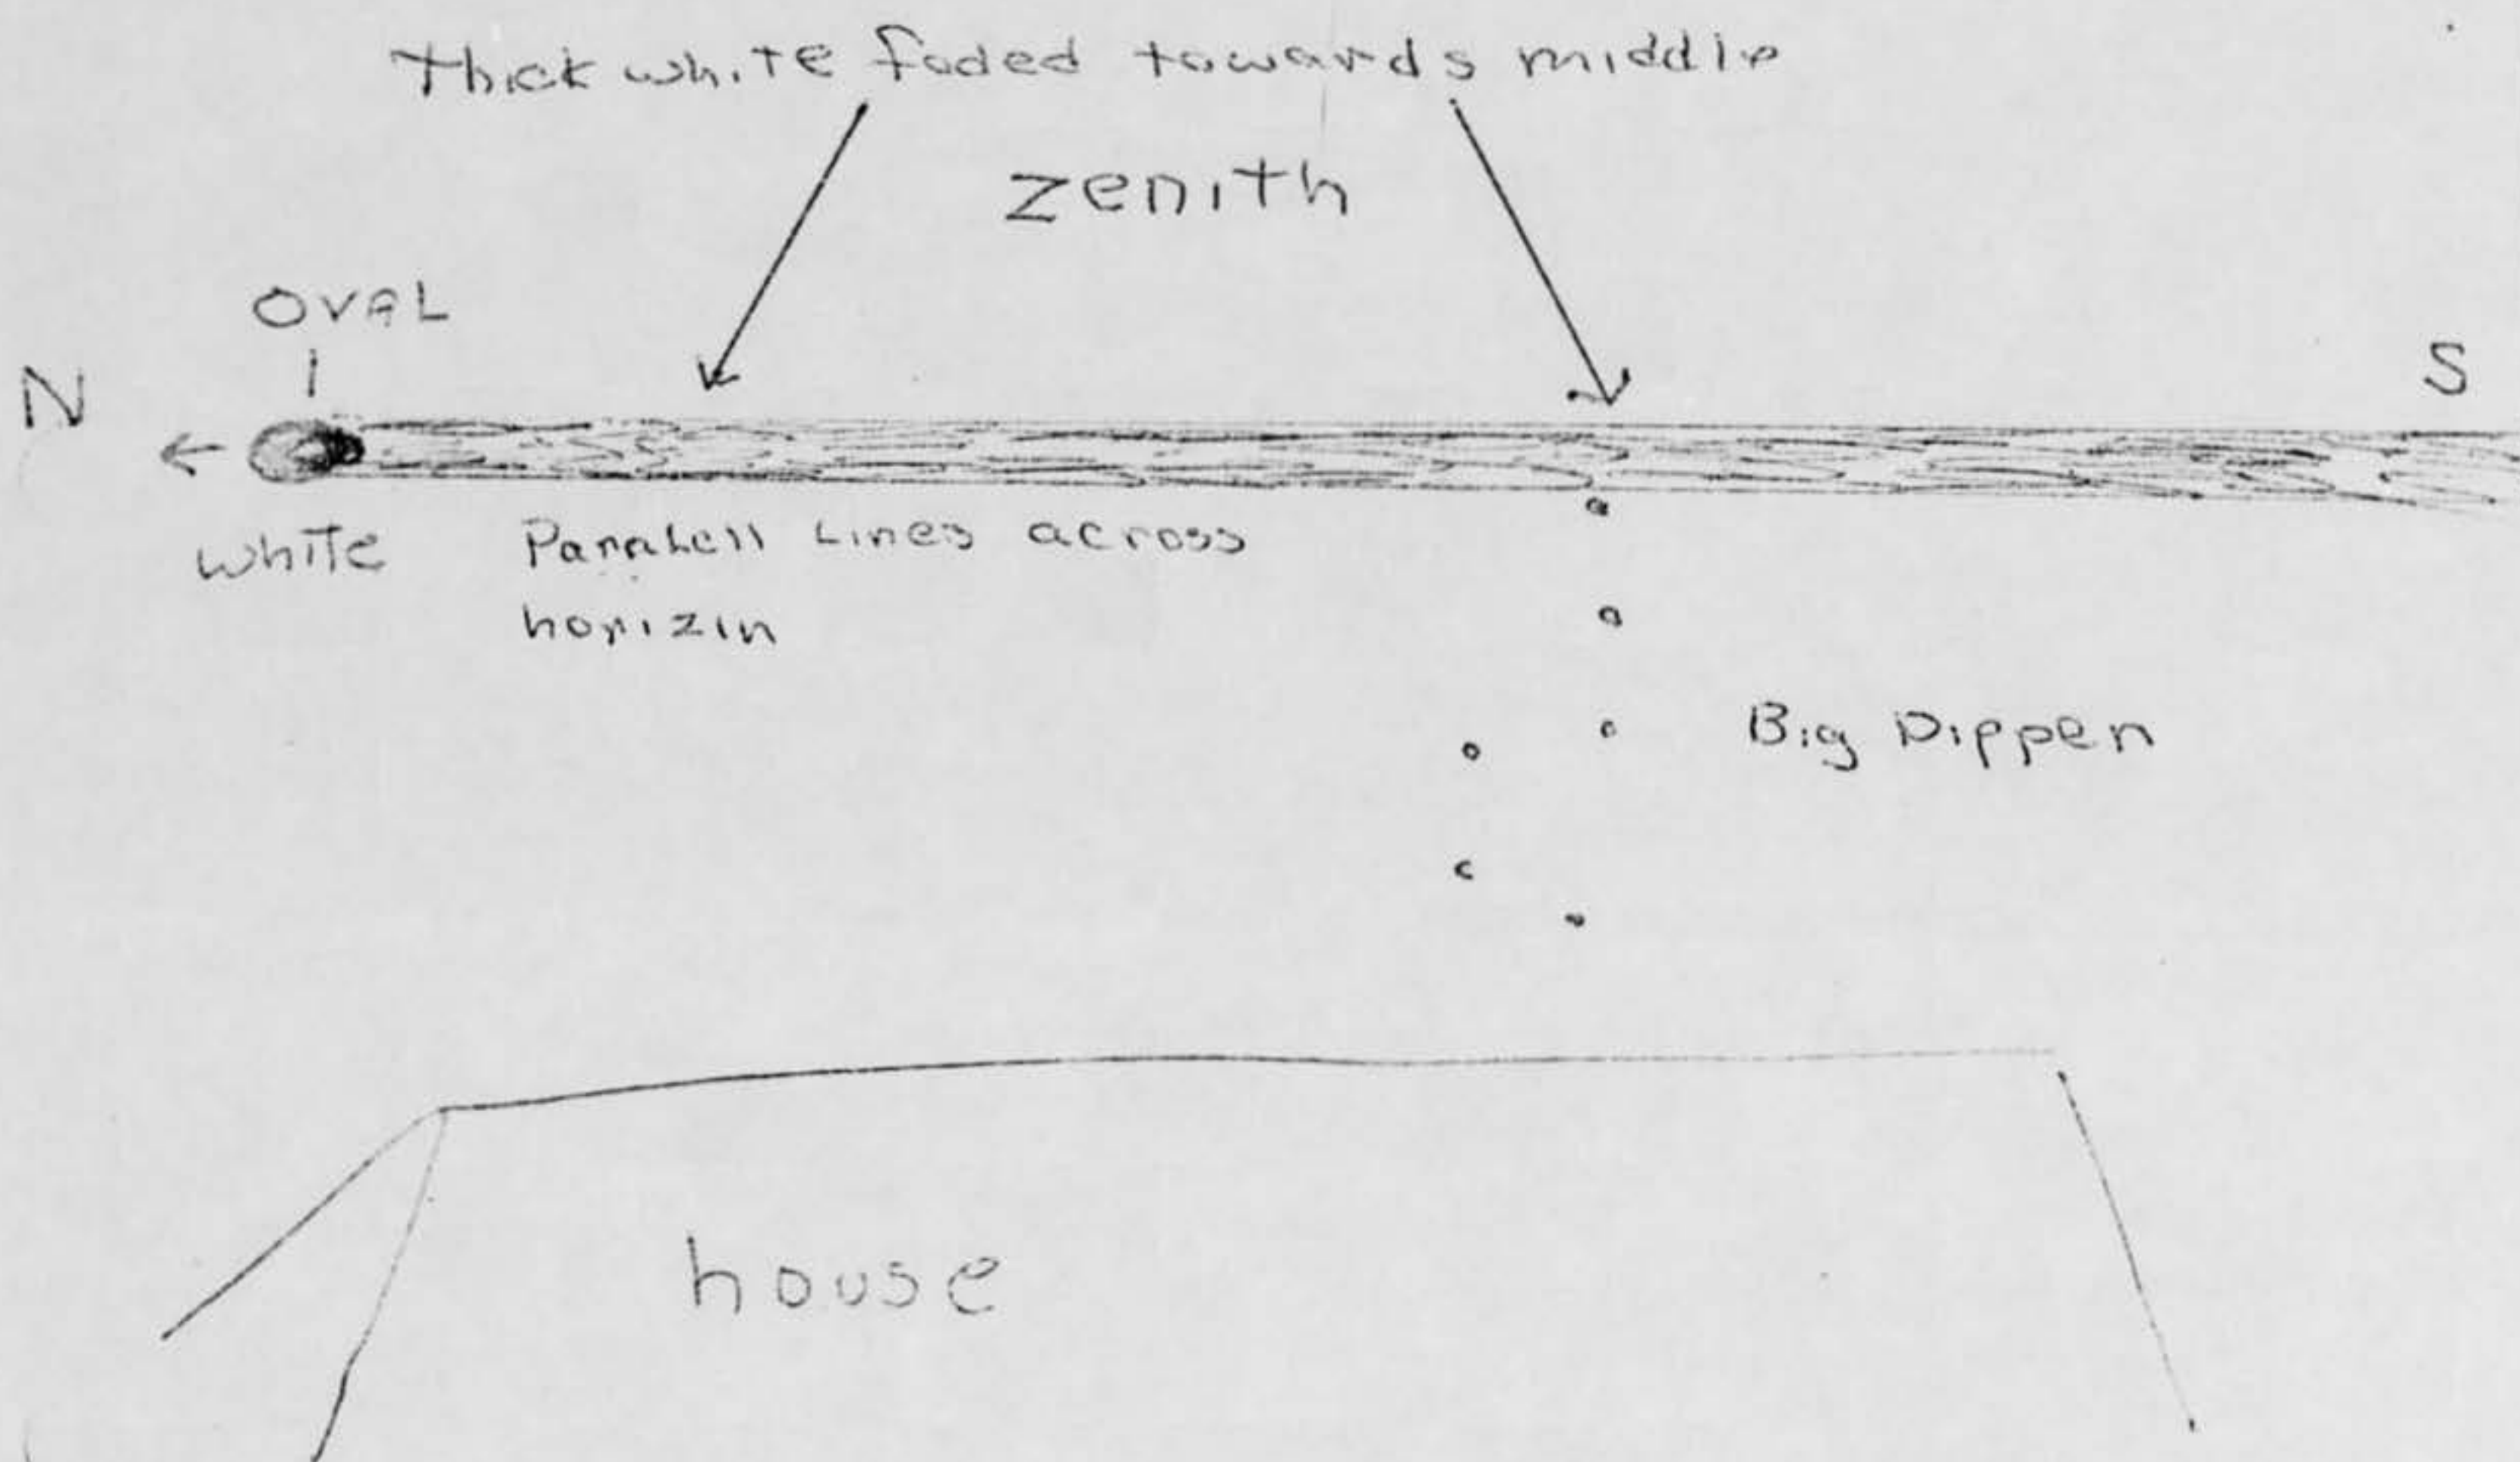 Thick white faded towards middle
zenith
OVAL
N
S
White
Parahell Lines across
horizin
Big Dipper
house